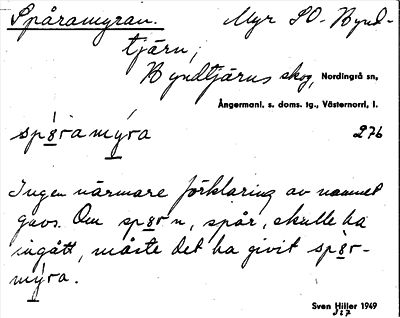 Spåramyran. Myr SO. Bynd-
tjärn,
Byndtjärns skog, Nordingrå sn,
Ångermanl. s. doms. tg., Västernorrl. l.
spåramýra 276
Ingen närmare förklaring av namnet
gavs. Om spår n, spår, skulle ha
ingått, måste det ha givit spår-
mýra.
Sven Hiller 1949